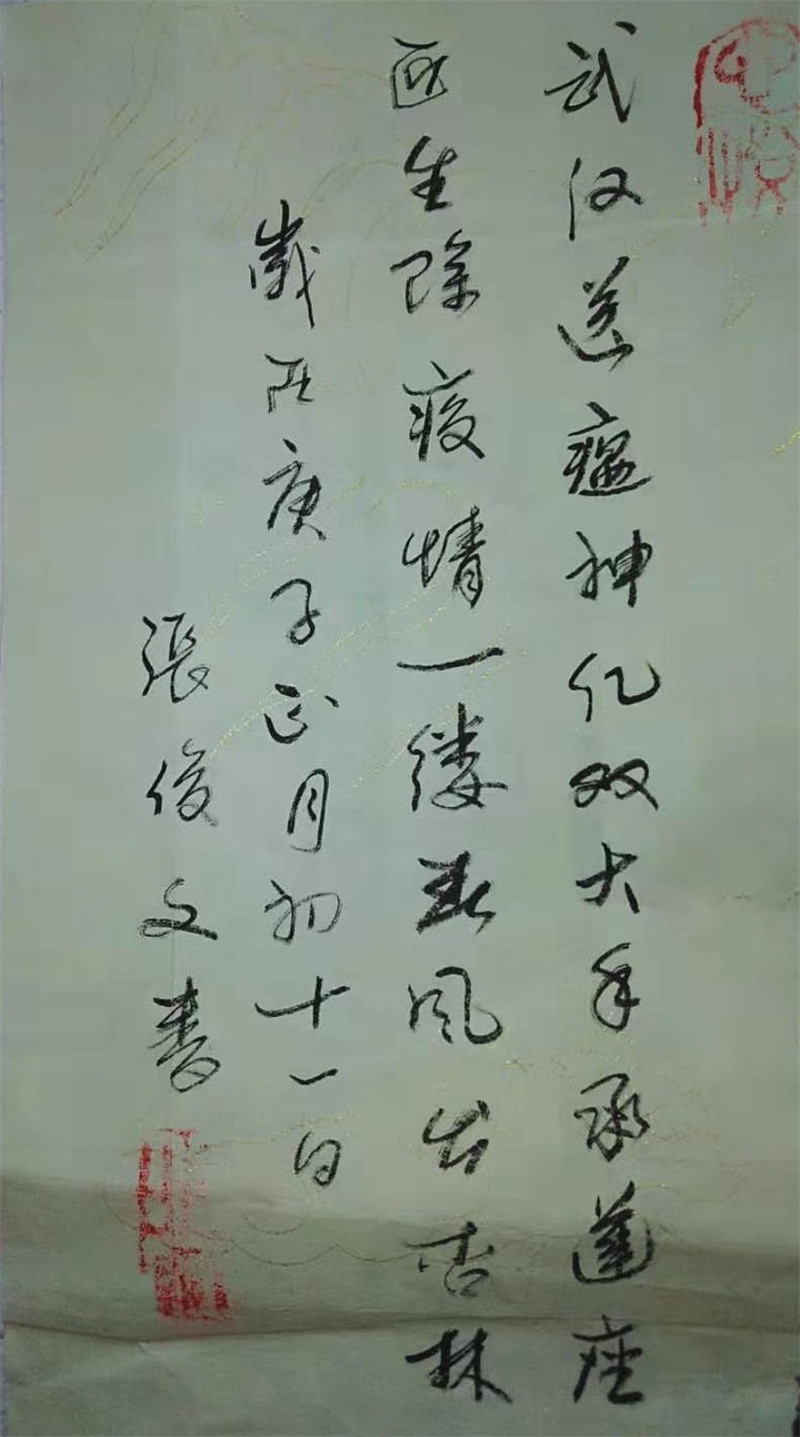 武汉送瘟神亿双大手承莲座
医生除疫情一缕春风出杏林
歲在庚子正月初十一日
張俊文書